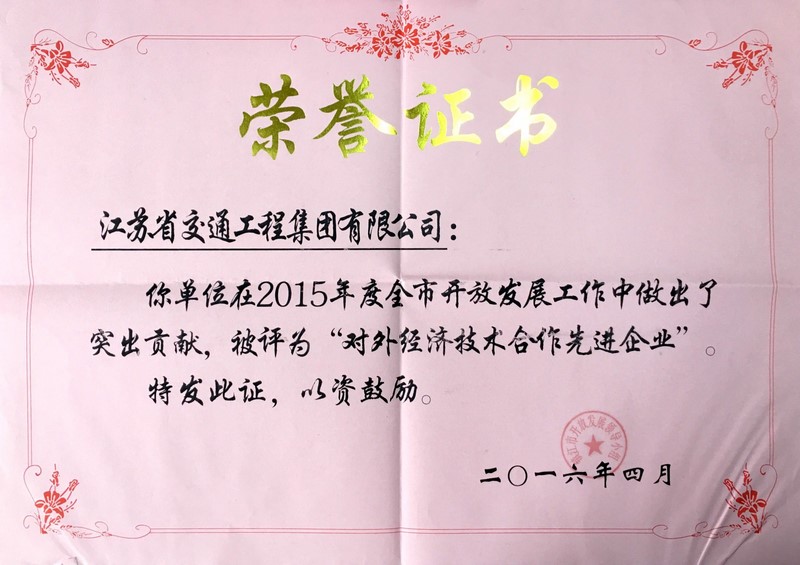 荣誉证书
江苏省交通工程集团有限公司：
你单位在2015年度全市开放发展工作中做出了
突出贡献，被评为“对外经济技术合作先进企业”。
特发此证，以资鼓励。
镇江市开放发展领导小组
二〇一六年四月